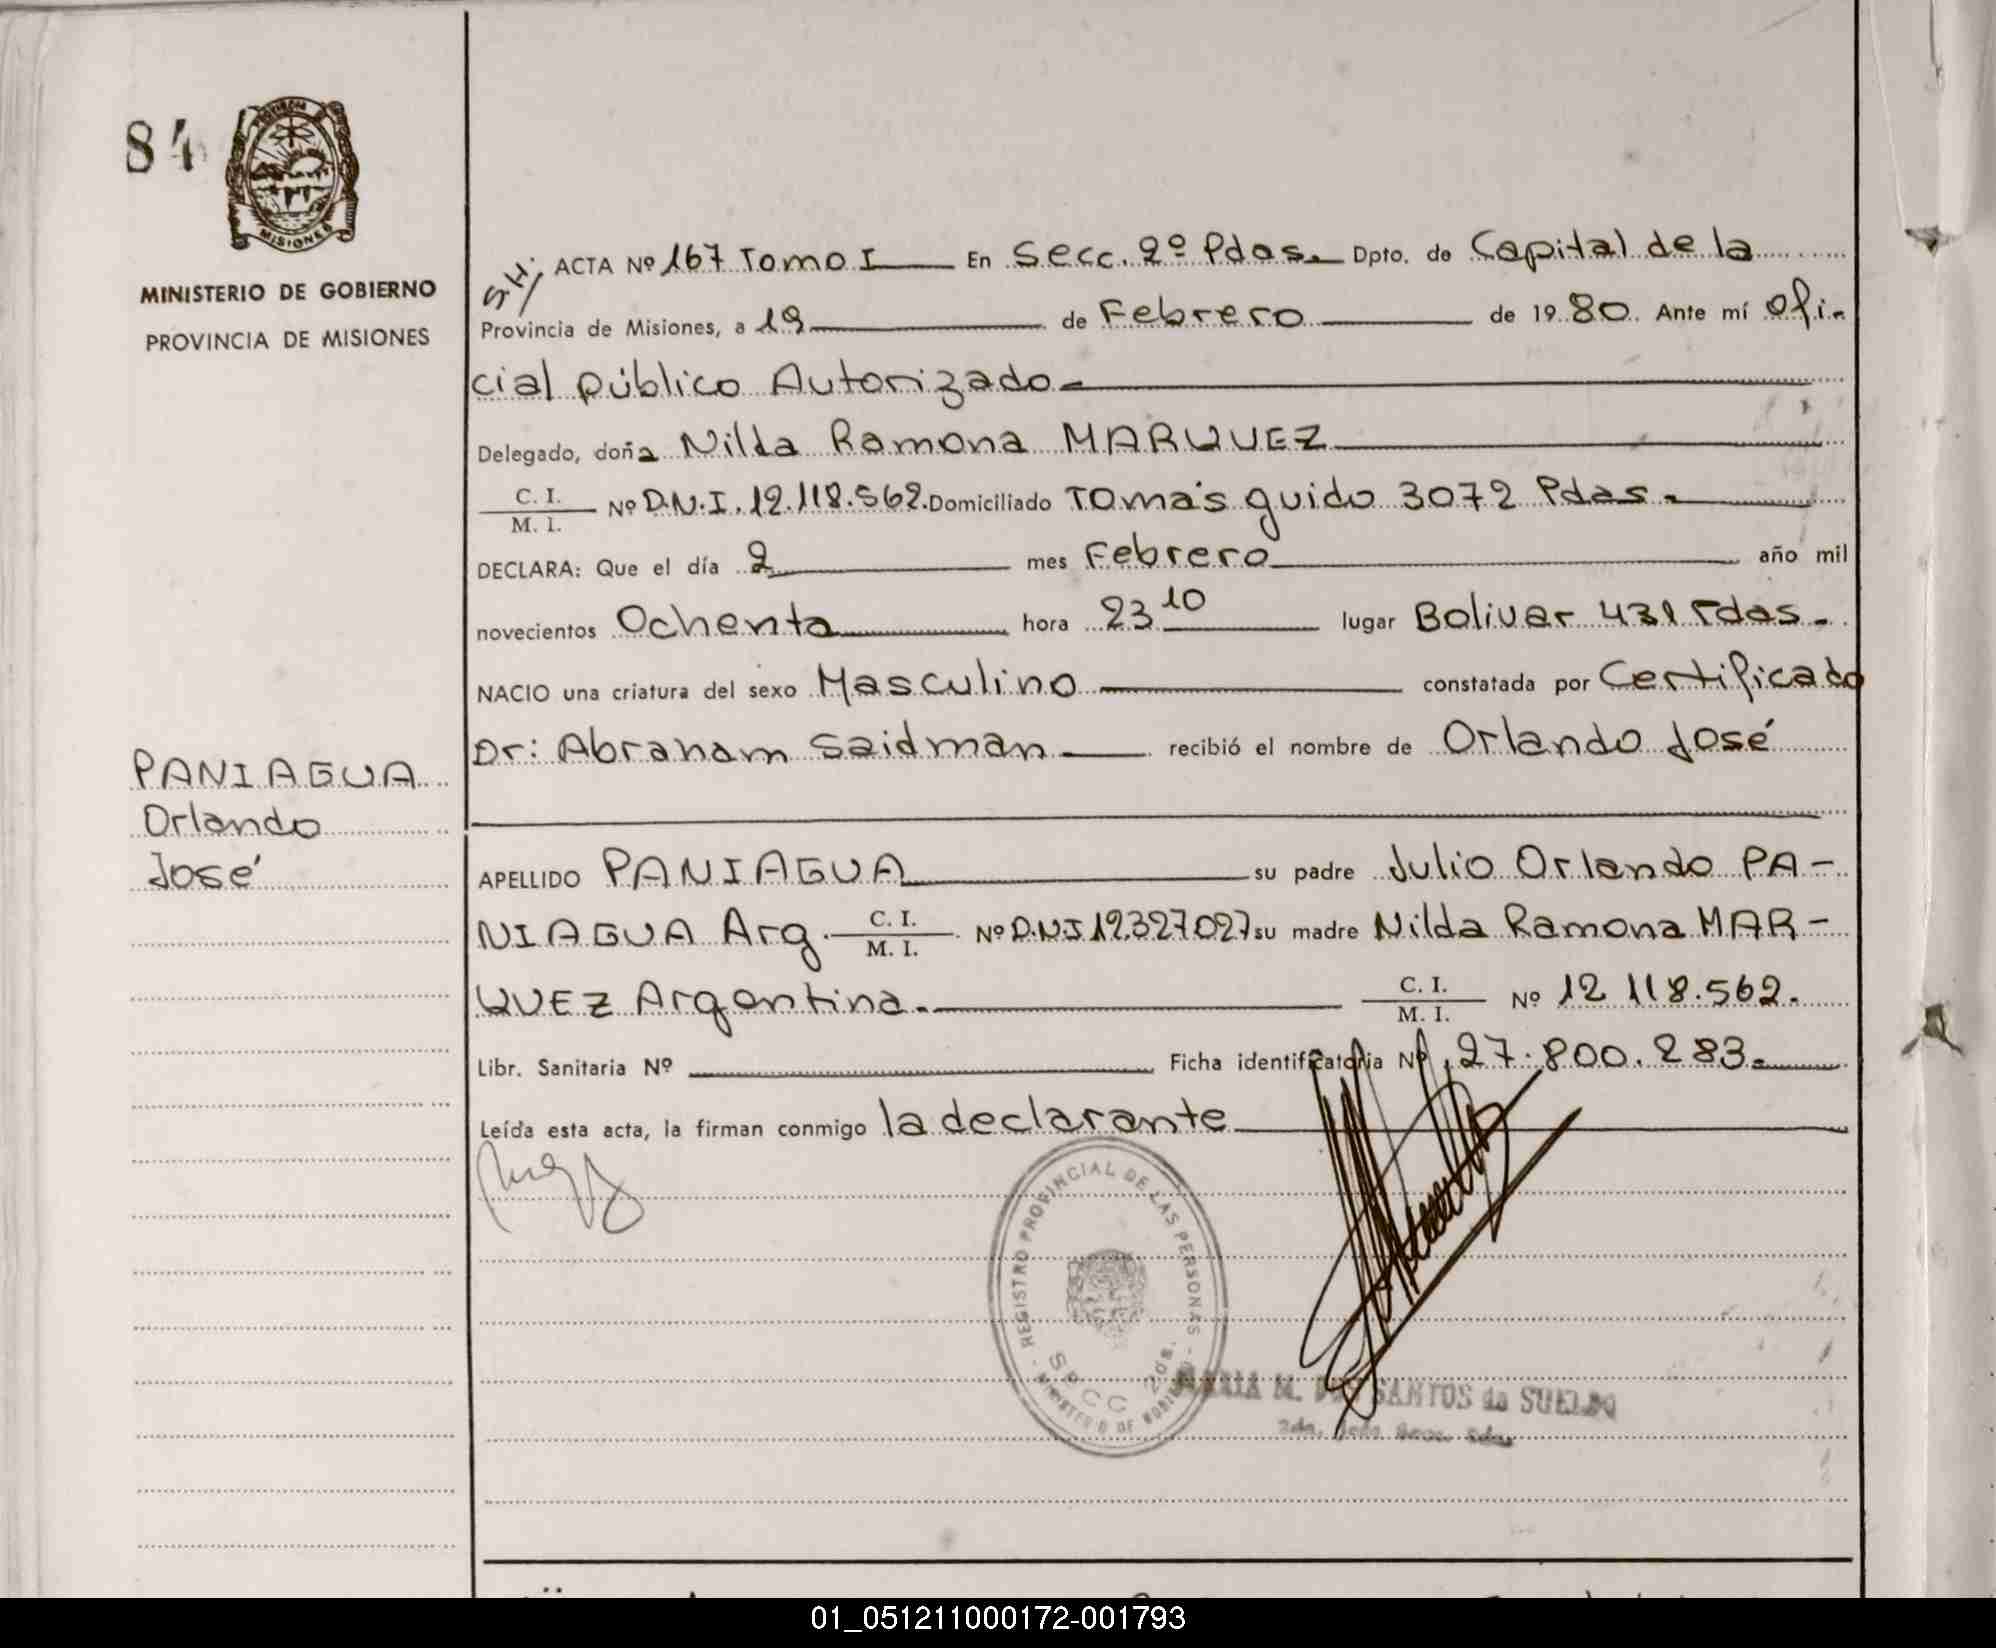 84
MISIONES
MINISTERIO DE GOBIERNO
PROVINCIA DE MISIONES
PANIAGUA
Orlando
José
S.H.
ACTA Nº 167 Tomo I En Secc. 2º Pdas. Dpto. de Capital de la
Provincia de Misiones, a 19 de Febrero de 1980. Ante mí Ofi-
cial público Autorizado-
Delegado, doña Nilda Ramona MARQUEZ
C. I.
M. I.
Nº D.N.I. 12.118.562. Domiciliado Tomás guido 3072 Pdas.
DECLARA: Que el día 2 mes Febrero año mil
novecientos Ochenta hora 23 10 lugar Bolivar 431 Pdas.
NACIO una criatura del sexo Masculino constatada por Certificado
Dr: Abraham Saidman recibió el nombre de Orlando José
APELLIDO PANIAGUA su padre Julio Orlando PA-
NIAGUA Arg. C. I. M. I. Nº D.N.I 12.327.027 su madre Nilda Ramona MAR-
QUEZ Argentina. C. I. M. I. Nº 12 118.562.
Libr. Sanitaria Nº Ficha identificatoria Nº 27.800.283.
Leída esta acta, la firman conmigo la declarante
REGISTRO PROVINCIAL DE LAS PERSONAS
MINISTERIO DE GOBIERNO
SECC 2da.
MARIA M. DOS SANTOS de SUELDO
01_051211000172-001793